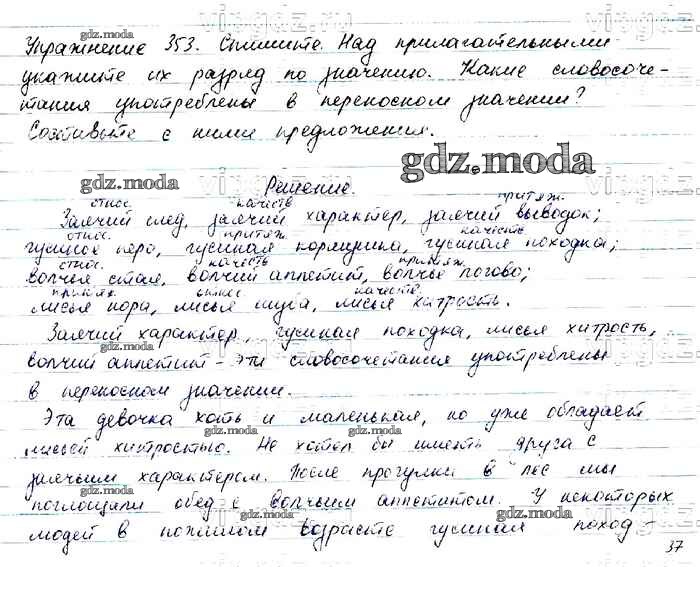 Упражнение 353. Спишите. Над прилагательными
укажите их разряд по значению. Какие словосоче-
тания употреблены в переносном значении?
Составьте с ними предложения.
gdz.moda
Решение.
относ. качеств притяж.
Заячий след, заячий характер, заячий выводок;
относ. притяж. качеств
гусиное перо, гусиная кормушка, гусиная походка;
относ. качеств притяж.
волчья стая, волчий аппетит, волчье логово;
притяж. относ качеств.
лисья нора, лисья шуба, лисья хитрость.
Заячий характер, гусиная походка, лисья хитрость,
волчий аппетит - эти словосочетания употреблены
в переносном значении.
Эта девочка хоть и маленькая, но уже обладает
лисьей хитростью. Не хотел бы иметь друга с
заячьим характером. После прогулки в лес мы
поглощали обед с волчьим аппетитом. У некоторых
людей в пожилом возрасте гусиная поход-
37